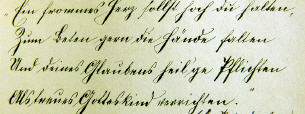 "Ein frommes Herz sollst hoch du halten,
Zum Beten gern die Hände falten
Und deines Glaubens heil'ge Pflichten
Als treues Gotteskind verrichten."